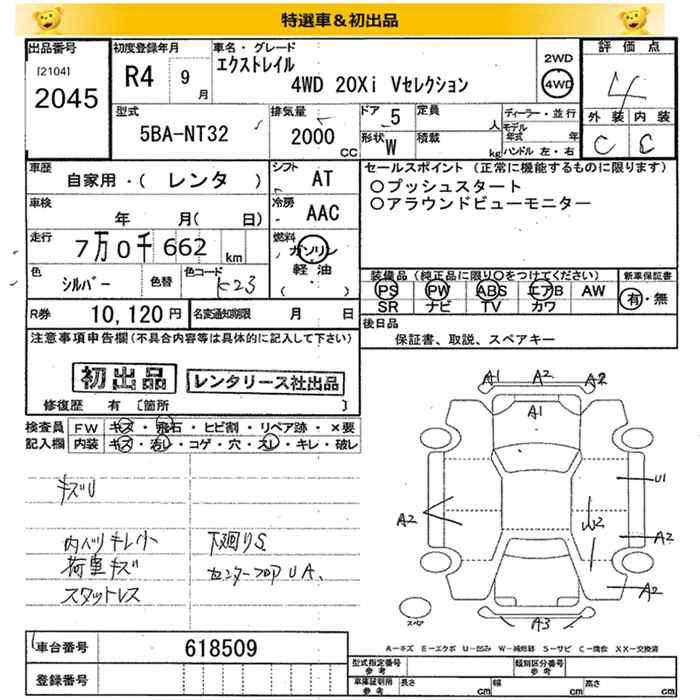 特選車&初出品
出品番号
[2104]
2045
初度登録年月
R4 9月
車名・グレード
エクストレイル
4WD 20Xi Vセレクション
2WD
4WD
評価点
4
外装 内装
C C
型式
5BA-NT32
排気量
2000 CC
ドア 5
形状 W
定員 人
積載 kg
ディーラー・並行
モデル年式 年
ハンドル 左・右
車歴
自家用・( レンタ )
シフト
AT
車検
年 月( 日)
冷房
AAC
走行
7万0千662 km
燃料
ガソリン
軽油
( )
色
シルバー
色替
色コード
K23
R券
10,120円
名変通知期限 月 日
セールスポイント (正常に機能するものに限ります)
○プッシュスタート
○アラウンドビューモニター
装備品(純正品に限り○をつけてください)
PS PW ABS エアB AW
SR ナビ TV カワ
新車保証書
有・無
後日品
保証書、取説、スペアキー
注意事項申告欄(不具合内容等は具体的に記入して下さい)
初出品
レンタリース社出品
修復歴 有 [箇所 ]
検査員記入欄
FW キズ・飛石・ヒビ割・リペア跡・×要
内装 キズ・汚レ・コゲ・穴・スレ・キレ・破レ
キズU
内ハリキレイ
荷室キズ
スタットレス
下廻りS
センターフロアUA.
A1 A2 A2
A1
U1
A2
W2
A2
A2
A3
スペア
A-キズ E-エクボ U-凹み W-補修跡 S-サビ C-腐食 XX-交換済
車台番号
618509
登録番号
型式指定番号
参考
類別区分番号
参考
車庫証明用
参考
長さ cm 幅 cm 高さ cm